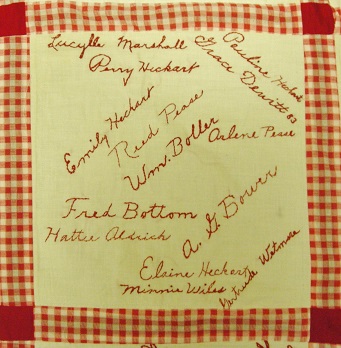 Lucylle Marshall
Pauline Heckart
Grace Dewitt 83
Perry Heckart
Emily Heckart
Reed Pease
Wm. Boller
Arlene Pease
Fred Bottom
Hattie Aldrich
A. G. Bower
Elaine Heckart
Minnie Wiles
Gertrude Witmore